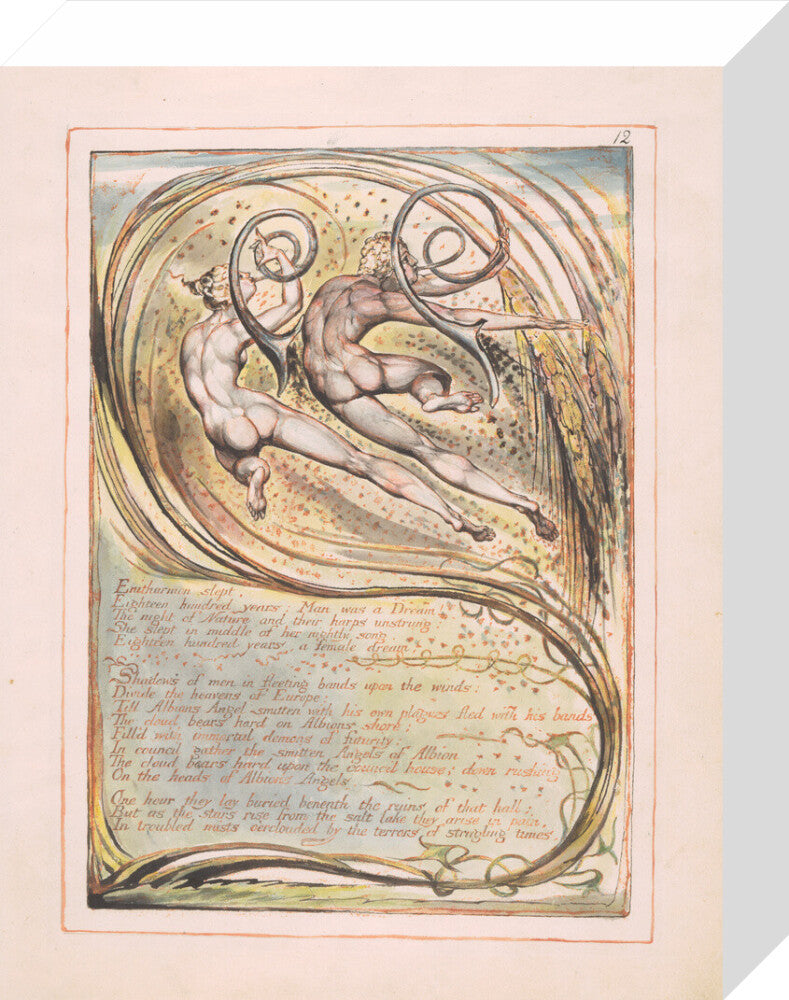 12
Enitharmon slept,
Eighteen hundred years: Man was a Dream!
The night of Nature and their harps unstrung:
She slept in middle of her nightly song,
Eighteen hundred years, a female dream!
Shadows of men in fleeting bands upon the winds:
Divide the heavens of Europe:
Till Albions Angel smitten with his own plagues fled with his bands
The cloud bears hard on Albions shore:
Fill'd with immortal demons of futurity:
In council gather the smitten Angels of Albion
The cloud bears hard upon the council house; down rushing
On the heads of Albions Angels.
One hour they lay buried beneath the ruins of that hall;
But as the stars rise from the salt lake they arise in pain,
In troubled mists o'erclouded by the terrors of strugling times.